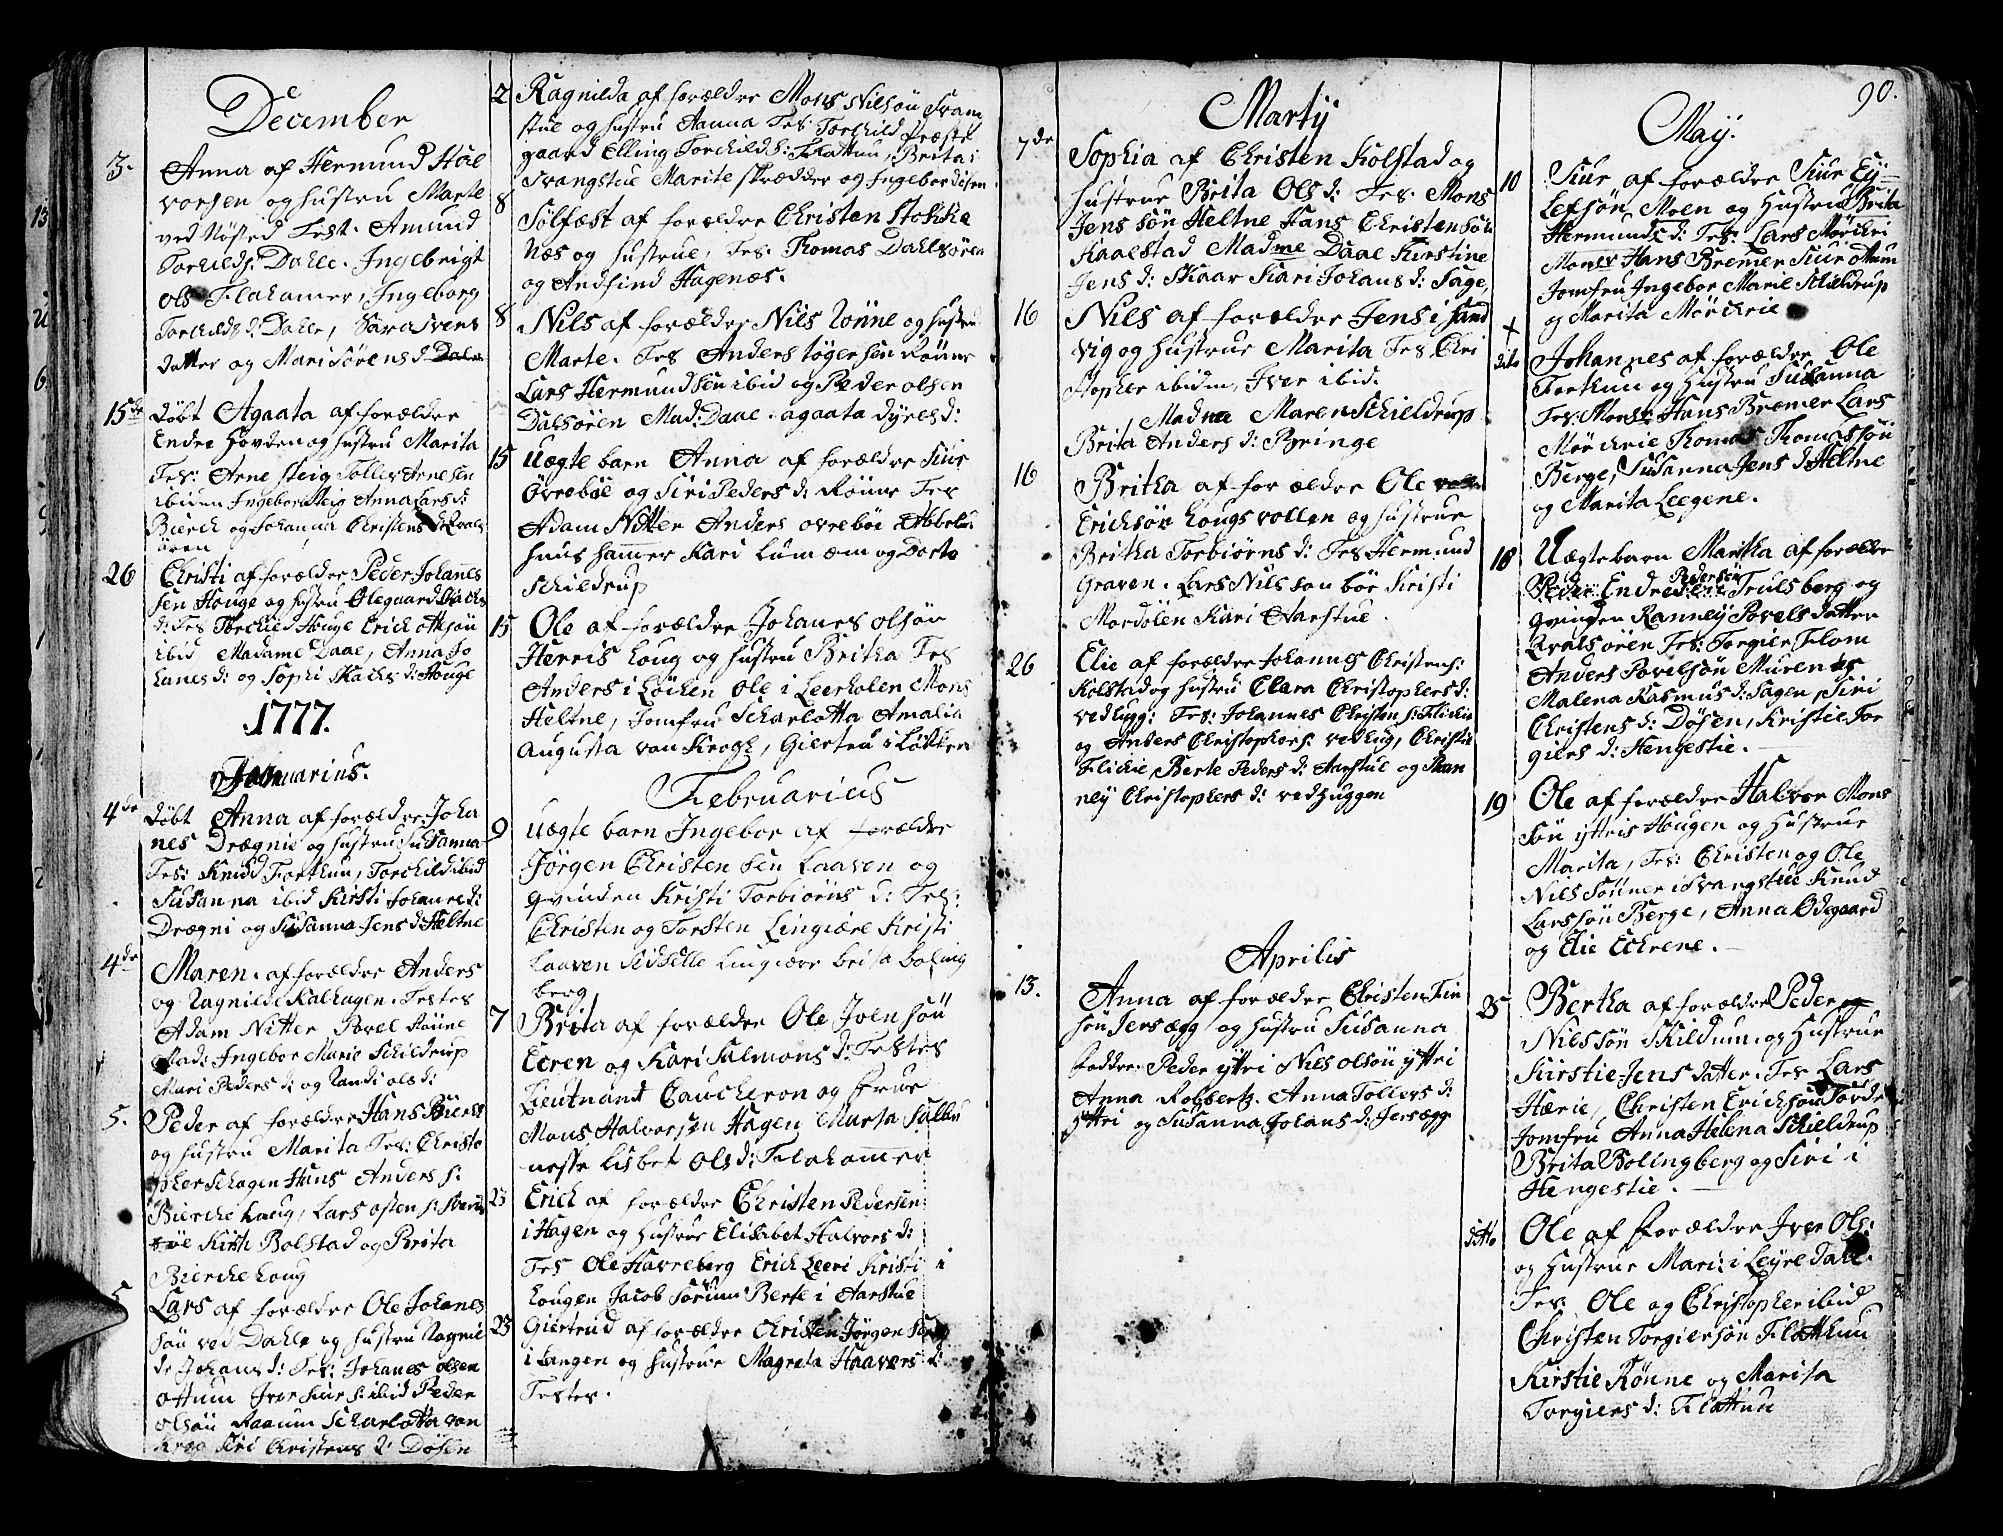 December
3. Anna af Hermund Hal
vorsen og hustru Marte
ved Nøsted Test. Amund
Torkilds: Dahle. Ingebrigt
ols Flahamer, Ingeborg
Torkilds d: Dahle, Sara Svens
datter og Mari Sørens d
15de døbt Agaata af forældre
Endre Hovden og hustru Marita
Tes: Arne steig Tollev Arnesen
ibiden Ingebor Steig Anna Lars d:
Bierck og Johanna Christens d: Qvals
øren
26 Christi af forældre Peder Johanes
sen Houge og hustru Olegaard
d: Tes Torckild Houge Erick
ibid Madame Daae, Anna Jo
hanes d: og Sophi d: Houge
1777.
Januarius.
4de døbt Anna af forældre Joha
nes Drægnie og hustru Susanna
Tes: Knud Forthun, Torchild ibid
Susanna ibid Kirsti Johanes d:
Drægni og Susanna Jens d: Heltne
4de Maren af forældre Anders
og Ragnilde Kalhagen. Testes
Adam Nitter Povel Rönne
Mad: Ingebor Marie Schildrup
Mari Peders d: og Randi ols d:
5. Peder af forældre Hans
og hustru Marita Tes: Christo
pher Schagen Hans Anders s:
Bierche haug, Lars osten s:
Kirsti Bolstad og Brita
Bierche houg
5 Lars af forældre Ole Johanes
søn ved Dahle og hustru Ragnil
de Johans d: Tes: Johanes olsen
ottum Iver Siur s: ibid Peder
olsøn Raaum Scharlotta von
Krog Siri Christens d: Døsen
2 Ragnilda af forældre Mons Nilsøn Svang
stue og hustru Hanna Tes: Torchild Præste
gaard Elling Torchilds: Flattun, Brita i
Svangstue Marite skrædder og Ingebor
8 Solfæst af forældre Christen Stokke
Næs og hustrue, Tes: Thomas Dahlsøren
og Andfind Hagenæs.
8 Nils af forældre Nils Rönne og hustru
Marte. Tes Anders tøgersen Rönne
Lars Hermundsen ibid og Peder olsen
Dalsøren Mad: Daae. agaata dyres d:
15 Uægte barn Anna af forældre Siur
Øvrebøe og Siri Peders d: Rönne Tes
Adam Nitter Anders ovrebøe
hammer Kari Lumæm og Dorte
Schieldrup
15 Ole af forældre Johanes olsøn
Herris houg og hustru Britha Tes
Anders i Löcken Ole i Leerholen Mons
Heltne, Jomfru Scharlotta Amalia
Augusta von Krogh, Giertru i Løkken
Februarius
9 Uægte barn Ingebor af forældre
Jörgen Christensen Laaven og
qvinden Kristi Torbiörns d: Tes:
Christen og Torsten Lingiære Kristi
Laaven Sidselle Lingiære brita boling
berg
7 Brita af forældre Ole Joensøn
Ecren og Kari Salmons d: Testes
Lieutnand Caucheron og Frue
Mons Halvorsen Hagen Marta
nesse Lisbet ols d: Flahamer
23 Erich af forældre Christen Pedersen
i Hagen og hustrue Elisabet Halvors d:
Tes Ole Havreberg Erich Leeri Kristi i
hougen Jacob Sørum Berte i Aarstue
23 Giertrud af forældre Christen Jørgen
i Langen og hustrue Magreta Haavers d:
Testes.
Martij
7de Sophia af Christen Kolstad og
hustrue Brita Ols d: Tes. Mons
Jenssøn Heltne Hans Christensøn
Kaalstad Madme Daae Kirstine
Jens d: Skaar Kari Johans d: Sage,
16 Nils af forældre Jens i Sand
vig og hustrue Marita Tes Chri
stopher ibiden, Iver ibid.
Madm Maren Schieldrup
Brita Anders d: Bringe
16 Britha af forældre Ole
Erichsøn Lougsvollen og hustrue
Britha Torbiørns d: Tes Hermund
Graven. Lars Nilssøn bøe Kristi
Mordölen Kari Aarstue.
26 Elie af forældre Johannes Christens:
Kolstad og hustru Clara Christophers d:
vedhugg: Tes: Johannes Christen s: Flickie
og Anders Christophers: vedhug, Christi
Flickie Berte Peders d: Aarstue og Ran
ney Christophers d: vedhuggen
Aprilis
13. Anna af forældre Christen Fin
søn Jersægg og hustru Susanna
faddre. Peder yttri Nils olsøn yttri
Anna Robbertz. Anna Tollevs d:
yttri og Susanna Johans d: Jersægg
90.
Maij.
10 Siur af forældre Siur Ey=
Lefsøn Moen og Hustru Brita
Hermunds d: Tes: Lars Mörckri
Monsr Hans Bremer Siur Otum
Jomfru Ingebor Marie Schieldrup
og Marita Mörckrie
+
dito Johannes af forældre Ole
Forthun og Hustru Susanna
Tes: Monsr Hans Bremer Lars
Mörckrie Thomas Thomassøn
Berge, Susanna Jens d: Heltne
og Marita Leegene.
18 Uægtebarn Maritha af forældre
Peder Endre Pedersøn Trulsberg og
qvinden Ranney Povels datter
Qvalsören Tes: Torgier Flom
Anders Povelsøn Murenæs
Malena Rasmus d: Sagen, Siri
Christens d: Døsen, Kristie Tor
giers d: Hengestie.
19 Ole af forældre Halvor Mons
søn yttris Hougen og Hustrue
Marita, Tes: Christen og Ole
Nils Sønner i Svangstue Knud
Larssøn Berge, Anna Ødegaard
og Elie Echrene.
25 Bertha af forældre Peder og
Nilssøn Skildum og Hustrue
Kirstie Jens datter. Tes Lars
Hærie, Christen Erichsøn Fordr
Jomfru Anna Helena Schieldrup
Brita Bolingberg og Siri i
Hengestie.
ditto Ole af Forældre Iver Ols:
og Hustrue Mari: i Leyrdahl.
Tes. Ole og Christopher ibid
Christen Torgiersøn Flatthun
Kirstie Rönne og Marita
Torgiers d: Flattun